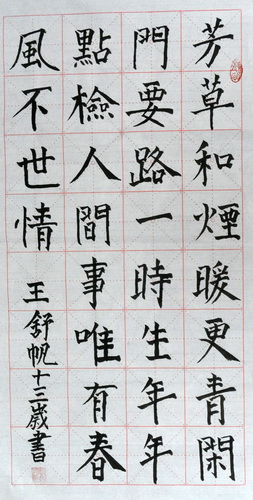 芳草和煙暖更青閑
門要路一時生年年
點檢人間事唯有春
風不世情
王舒帆十三歲書